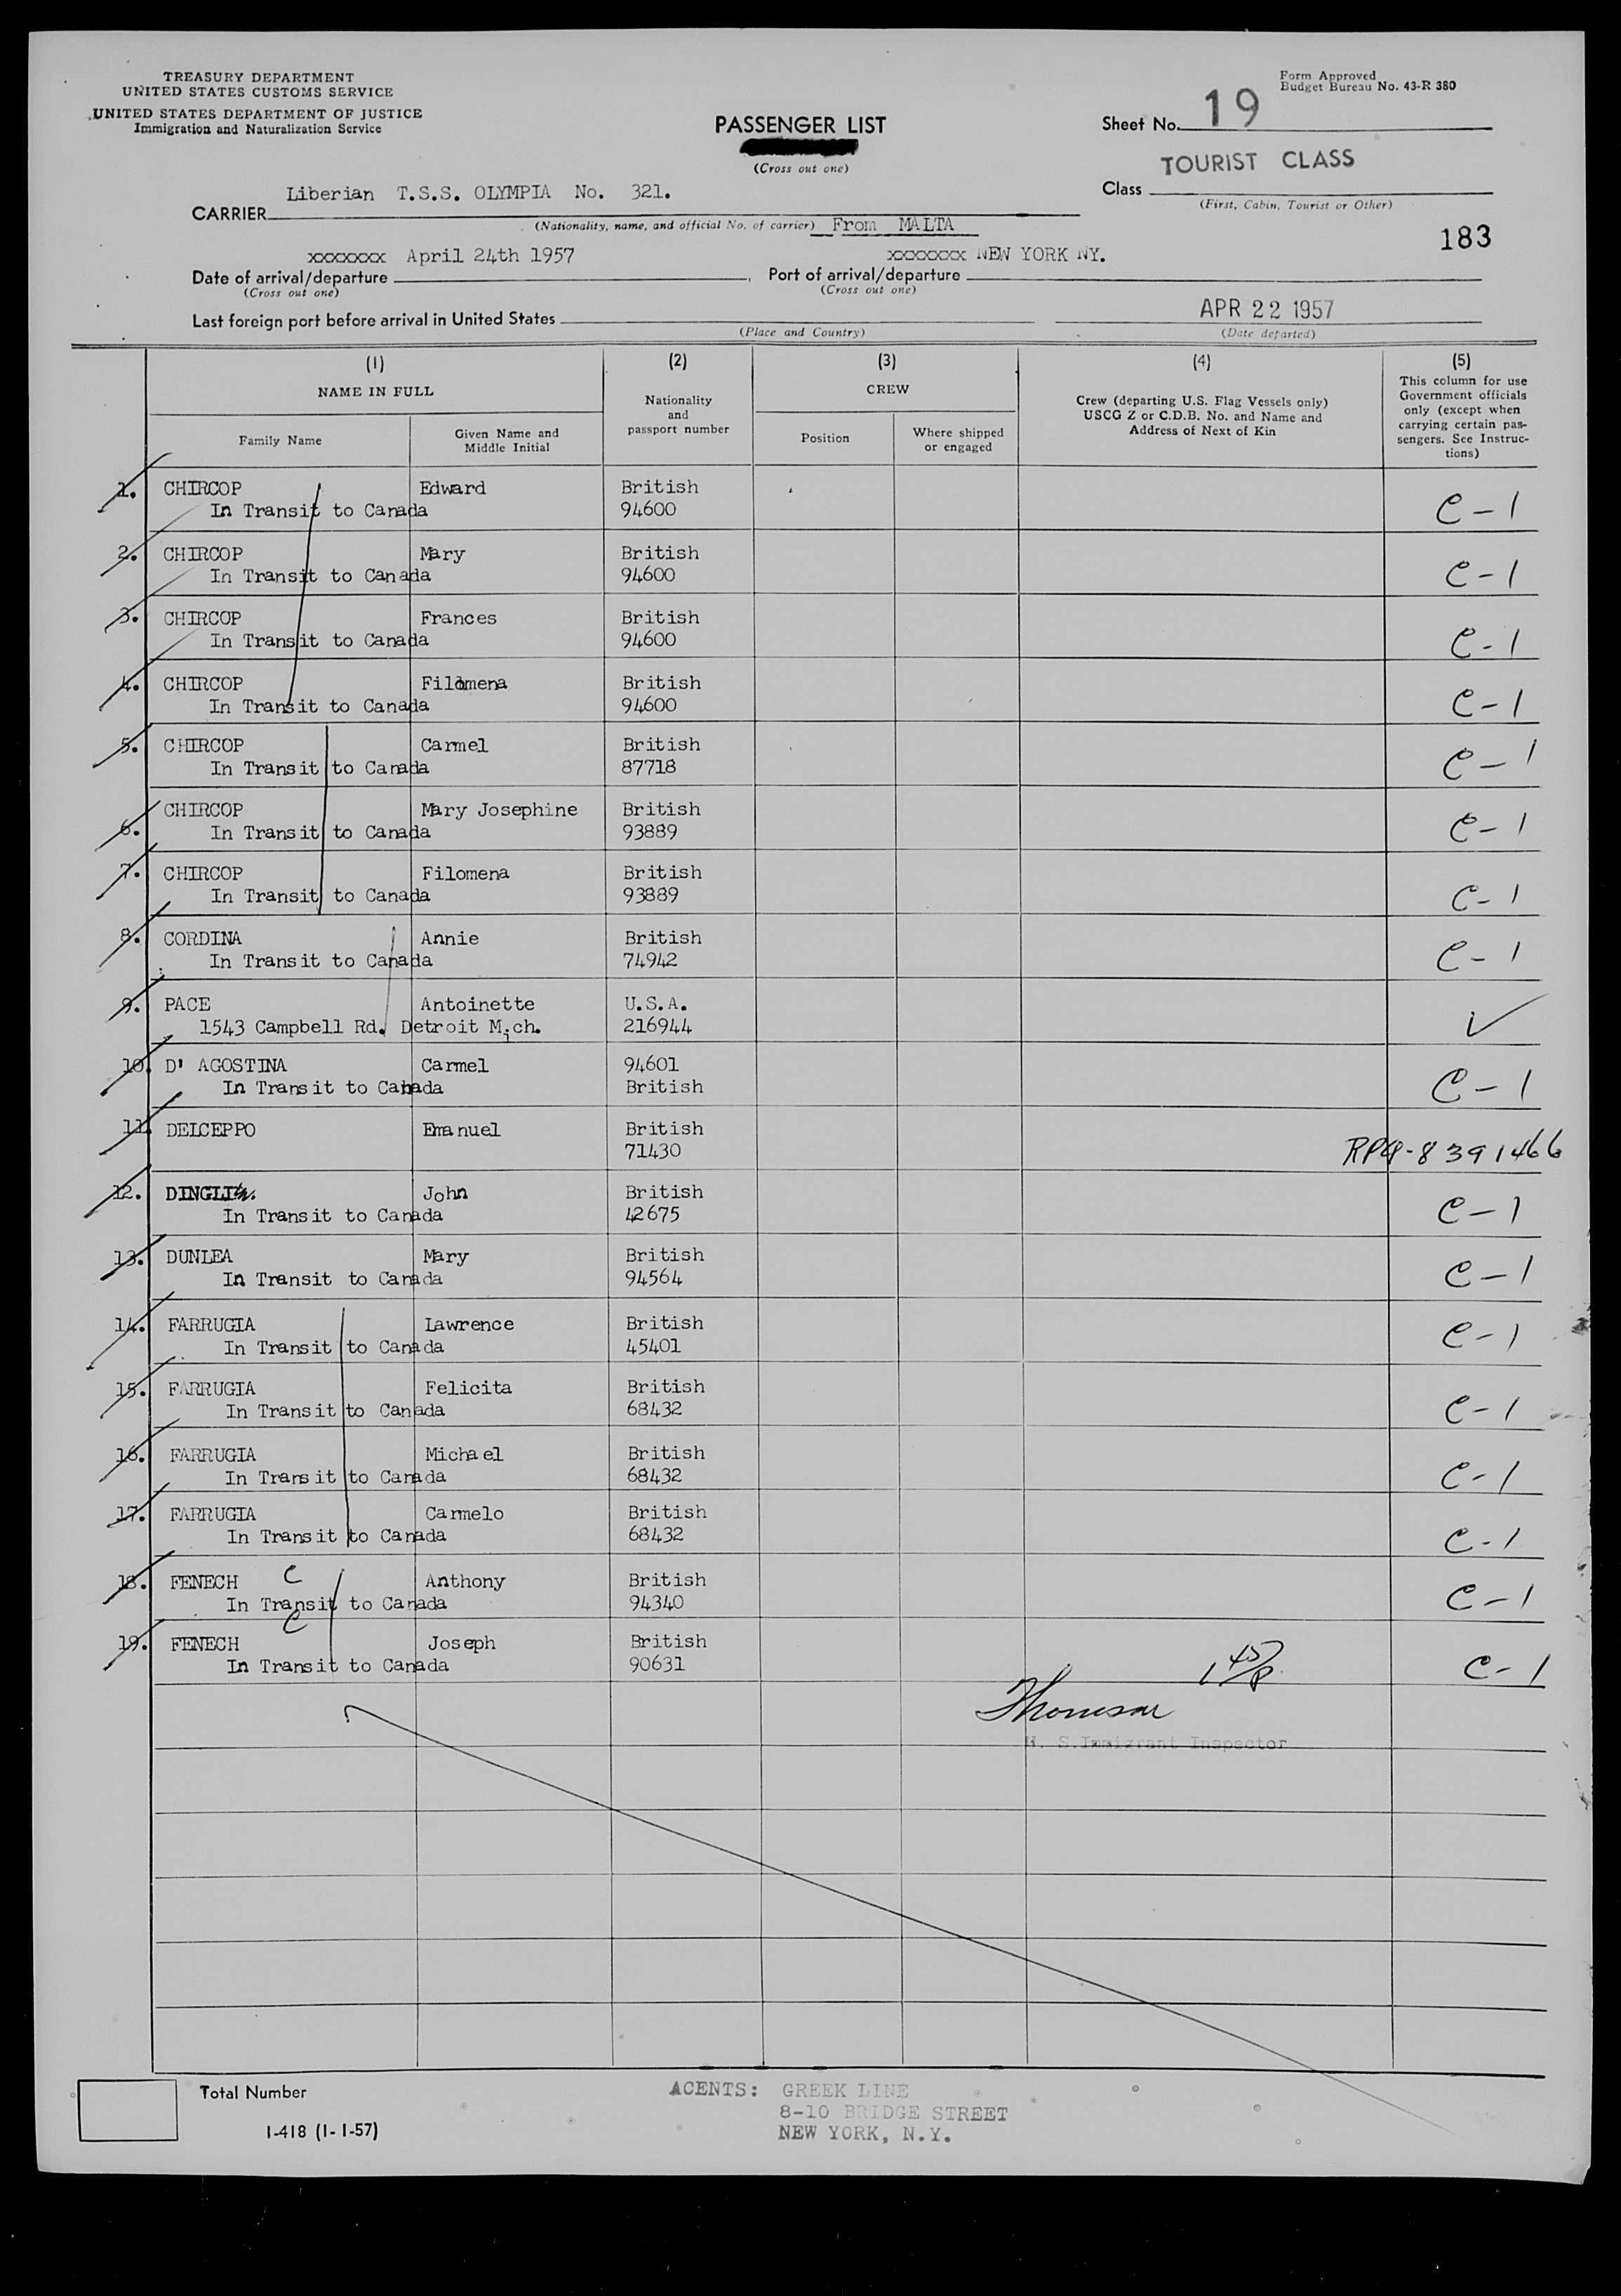 TREASURY DEPARTMENT
UNITED STATES CUSTOMS SERVICE
UNITED STATES DEPARTMENT OF JUSTICE
Immigration and Naturalization Service
PASSENGER LIST
(Cross out one)
Form Approved
Budget Bureau No. 43-R 380
Sheet No. 19
TOURIST CLASS
Class
(First, Cabin, Tourist or Other)
183
Liberian T.S.S. OLYMPIA No. 321.
CARRIER
(Nationality, name, and official No. of carrier) From MALTA
xxxxxxx April 24th 1957
xxxxxxx NEW YORK NY.
Date of arrival/departure
(Cross out one)
Port of arrival/departure
(Cross out one)
APR 22 1957
Last foreign port before arrival in United States
(Place and Country)
(Date departed)
(1)
NAME IN FULL
Family Name
Given Name and
Middle Initial
(2)
Nationality
and
passport number
(3)
CREW
Position
Where shipped
or engaged
(4)
Crew (departing U.S. Flag Vessels only)
USCG Z or C.D.B. No. and Name and
Address of Next of Kin
(5)
This column for use
Government officials
only (except when
carrying certain pas-
sengers. See Instruc-
tions)
1. CHIRCOP Edward British
In Transit to Canada 94600 C-1
2. CHIRCOP Mary British
In Transit to Canada 94600 C-1
3. CHIRCOP Frances British
In Transit to Canada 94600 C-1
4. CHIRCOP Filomena British
In Transit to Canada 94600 C-1
5. CHIRCOP Carmel British
In Transit to Canada 87718 C-1
6. CHIRCOP Mary Josephine British
In Transit to Canada 93889 C-1
7. CHIRCOP Filomena British
In Transit to Canada 93889 C-1
8. CORDINA Annie British
In Transit to Canada 74942 C-1
9. PACE Antoinette U.S.A.
1543 Campbell Rd. Detroit Mich. 216944 ✓
10. D' AGOSTINA Carmel 94601
In Transit to Canada British C-1
11. DELCEPPO Emanuel British
71430 8391466
12. John British
In Transit to Canada 42675 C-1
13. DUNLEA Mary British
In Transit to Canada 94564 C-1
14. FARRUGIA Lawrence British
In Transit to Canada 45401 C-1
15. FARRUGIA Felicita British
In Transit to Canada 68432 C-1
16. FARRUGIA Michael British
In Transit to Canada 68432 C-1
17. FARRUGIA Carmelo British
In Transit to Canada 68432 C-1
18. FENECH C Anthony British
In Transit to Canada 94340 C-1
C
19. FENECH Joseph British
In Transit to Canada 90631 C-1
U. S. Immigrant Inspector
Total Number
I-418 (1-1-57)
AGENTS: GREEK LINE
8-10 BRIDGE STREET
NEW YORK, N.Y.